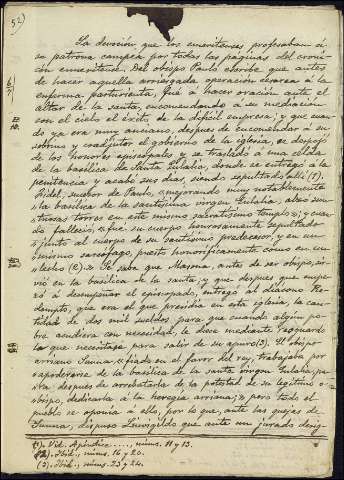 52)
La devoción que los emeritenses profesaban á
su patrona campea por todas las páginas del croni-
cón emeritense. Del obispo Paulo escribe que antes
de hacer aquella arriesgada operación cesárea á la
enferma parturienta, fué á hacer oración ante el
altar de la santa, encomendando á su mediación
con el cielo el éxito de la difícil empresa; y que cuan-
do ya era muy anciano, despues de encomendar á su
sobrino y coadjutor el gobierno de la iglesia, se despojó
de los honores episcopales y se trasladó á una celda
de la basílica de Santa Eulalia, donde se entregó á la
penitencia y acabó sus dias, siendo sepultado allí (1).
Fidel, sucesor de Paulo, «mejorando muy notablemente
»la basílica de la santísima virgen Eulalia, alzó sun-
»tuosas torres en este mismo sacratísimo templo»; y cuan-
do falleció, «fué su cuerpo honrosamente sepultado
»junto al cuerpo de su santísimo predecesor, y en un
»mismo sarcófago, puesto honoríficamente como en un
»lecho (2).» Se sabe que Masona, antes de ser obispo, sir-
vió en la basílica de la santa, y que despues que empe-
zó á desempeñar el episcopado, entregó al diácono Re-
dempto, que era el que presidía en esta iglesia, la can-
tidad de dos mil sueldos, para que cuando algún po-
bre acudiera con necesidad, le diese mediante resguardo
lo que necesitase para salir de su apuro (3). El obispo
arriano Sunna, «fiado en el favor del rey, trabajaba por
»apoderarse de la basílica de la santa virgen Eulalia, pa-
»ra despues de arrebatarla de la potestad de su legítimo o-
»bispo, dedicarla á la heregia arriana;» pero todo el
pueblo se oponia á ello, por lo que, ante las quejas de
Sunna, dispuso Leovigildo que ante un jurado desig-
(1). Vid. Apéndice ...., núms. 11 y 13.
(2). Ibid., núms. 16 y 20.
(3). Ibid., núms. 23 y 24.